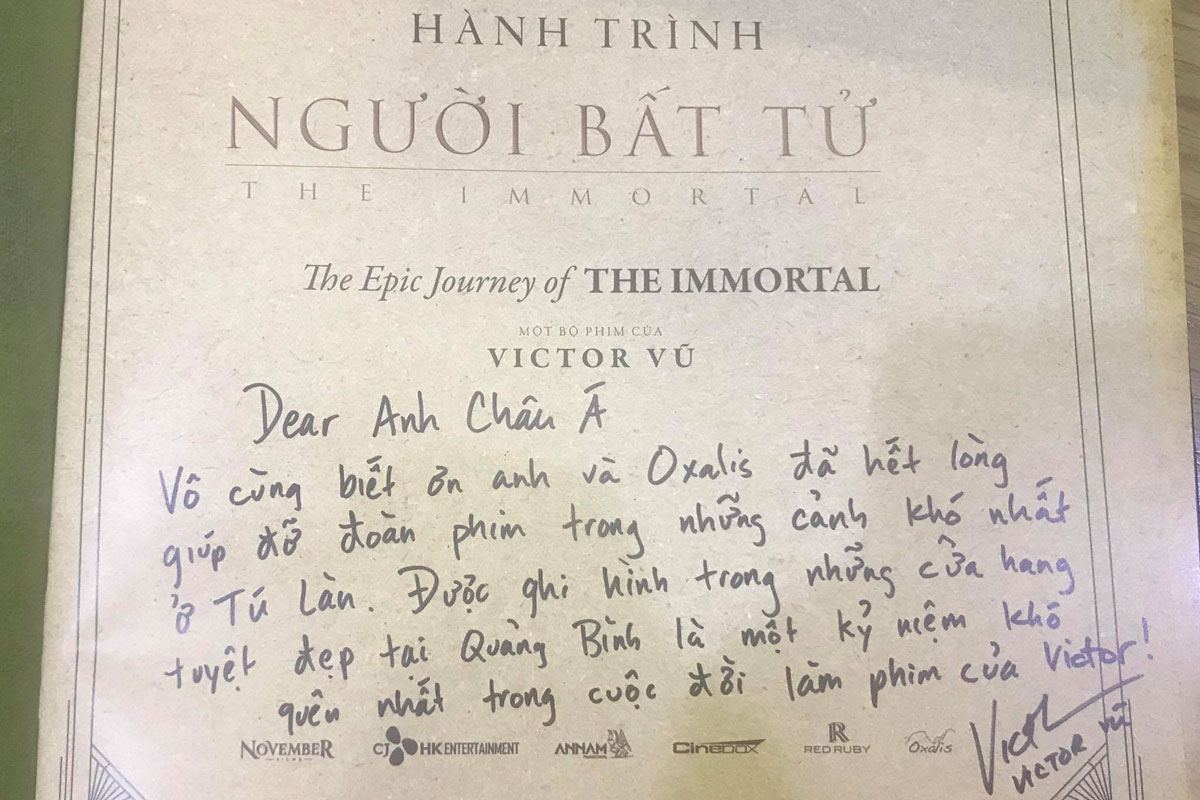 HÀNH TRÌNH
NGƯỜI BẤT TỬ
THE IMMORTAL
The Epic Journey of THE IMMORTAL
MỘT BỘ PHIM CỦA
VICTOR VŨ
Dear Anh Châu Á
Vô cùng biết ơn anh và Oxalis đã hết lòng
giúp đỡ đoàn phim trong những cảnh khó nhất
ở Tú Làn. Được ghi hình trong những cửa hang
tuyệt đẹp tại Quảng Bình là một kỷ niệm khó
quên nhất trong cuộc đời làm phim của Victor!
NOVEMBER FILMS CJ HK ENTERTAINMENT ANNAM CINEBOX RED RUBY Oxalis
VICTOR VŨ